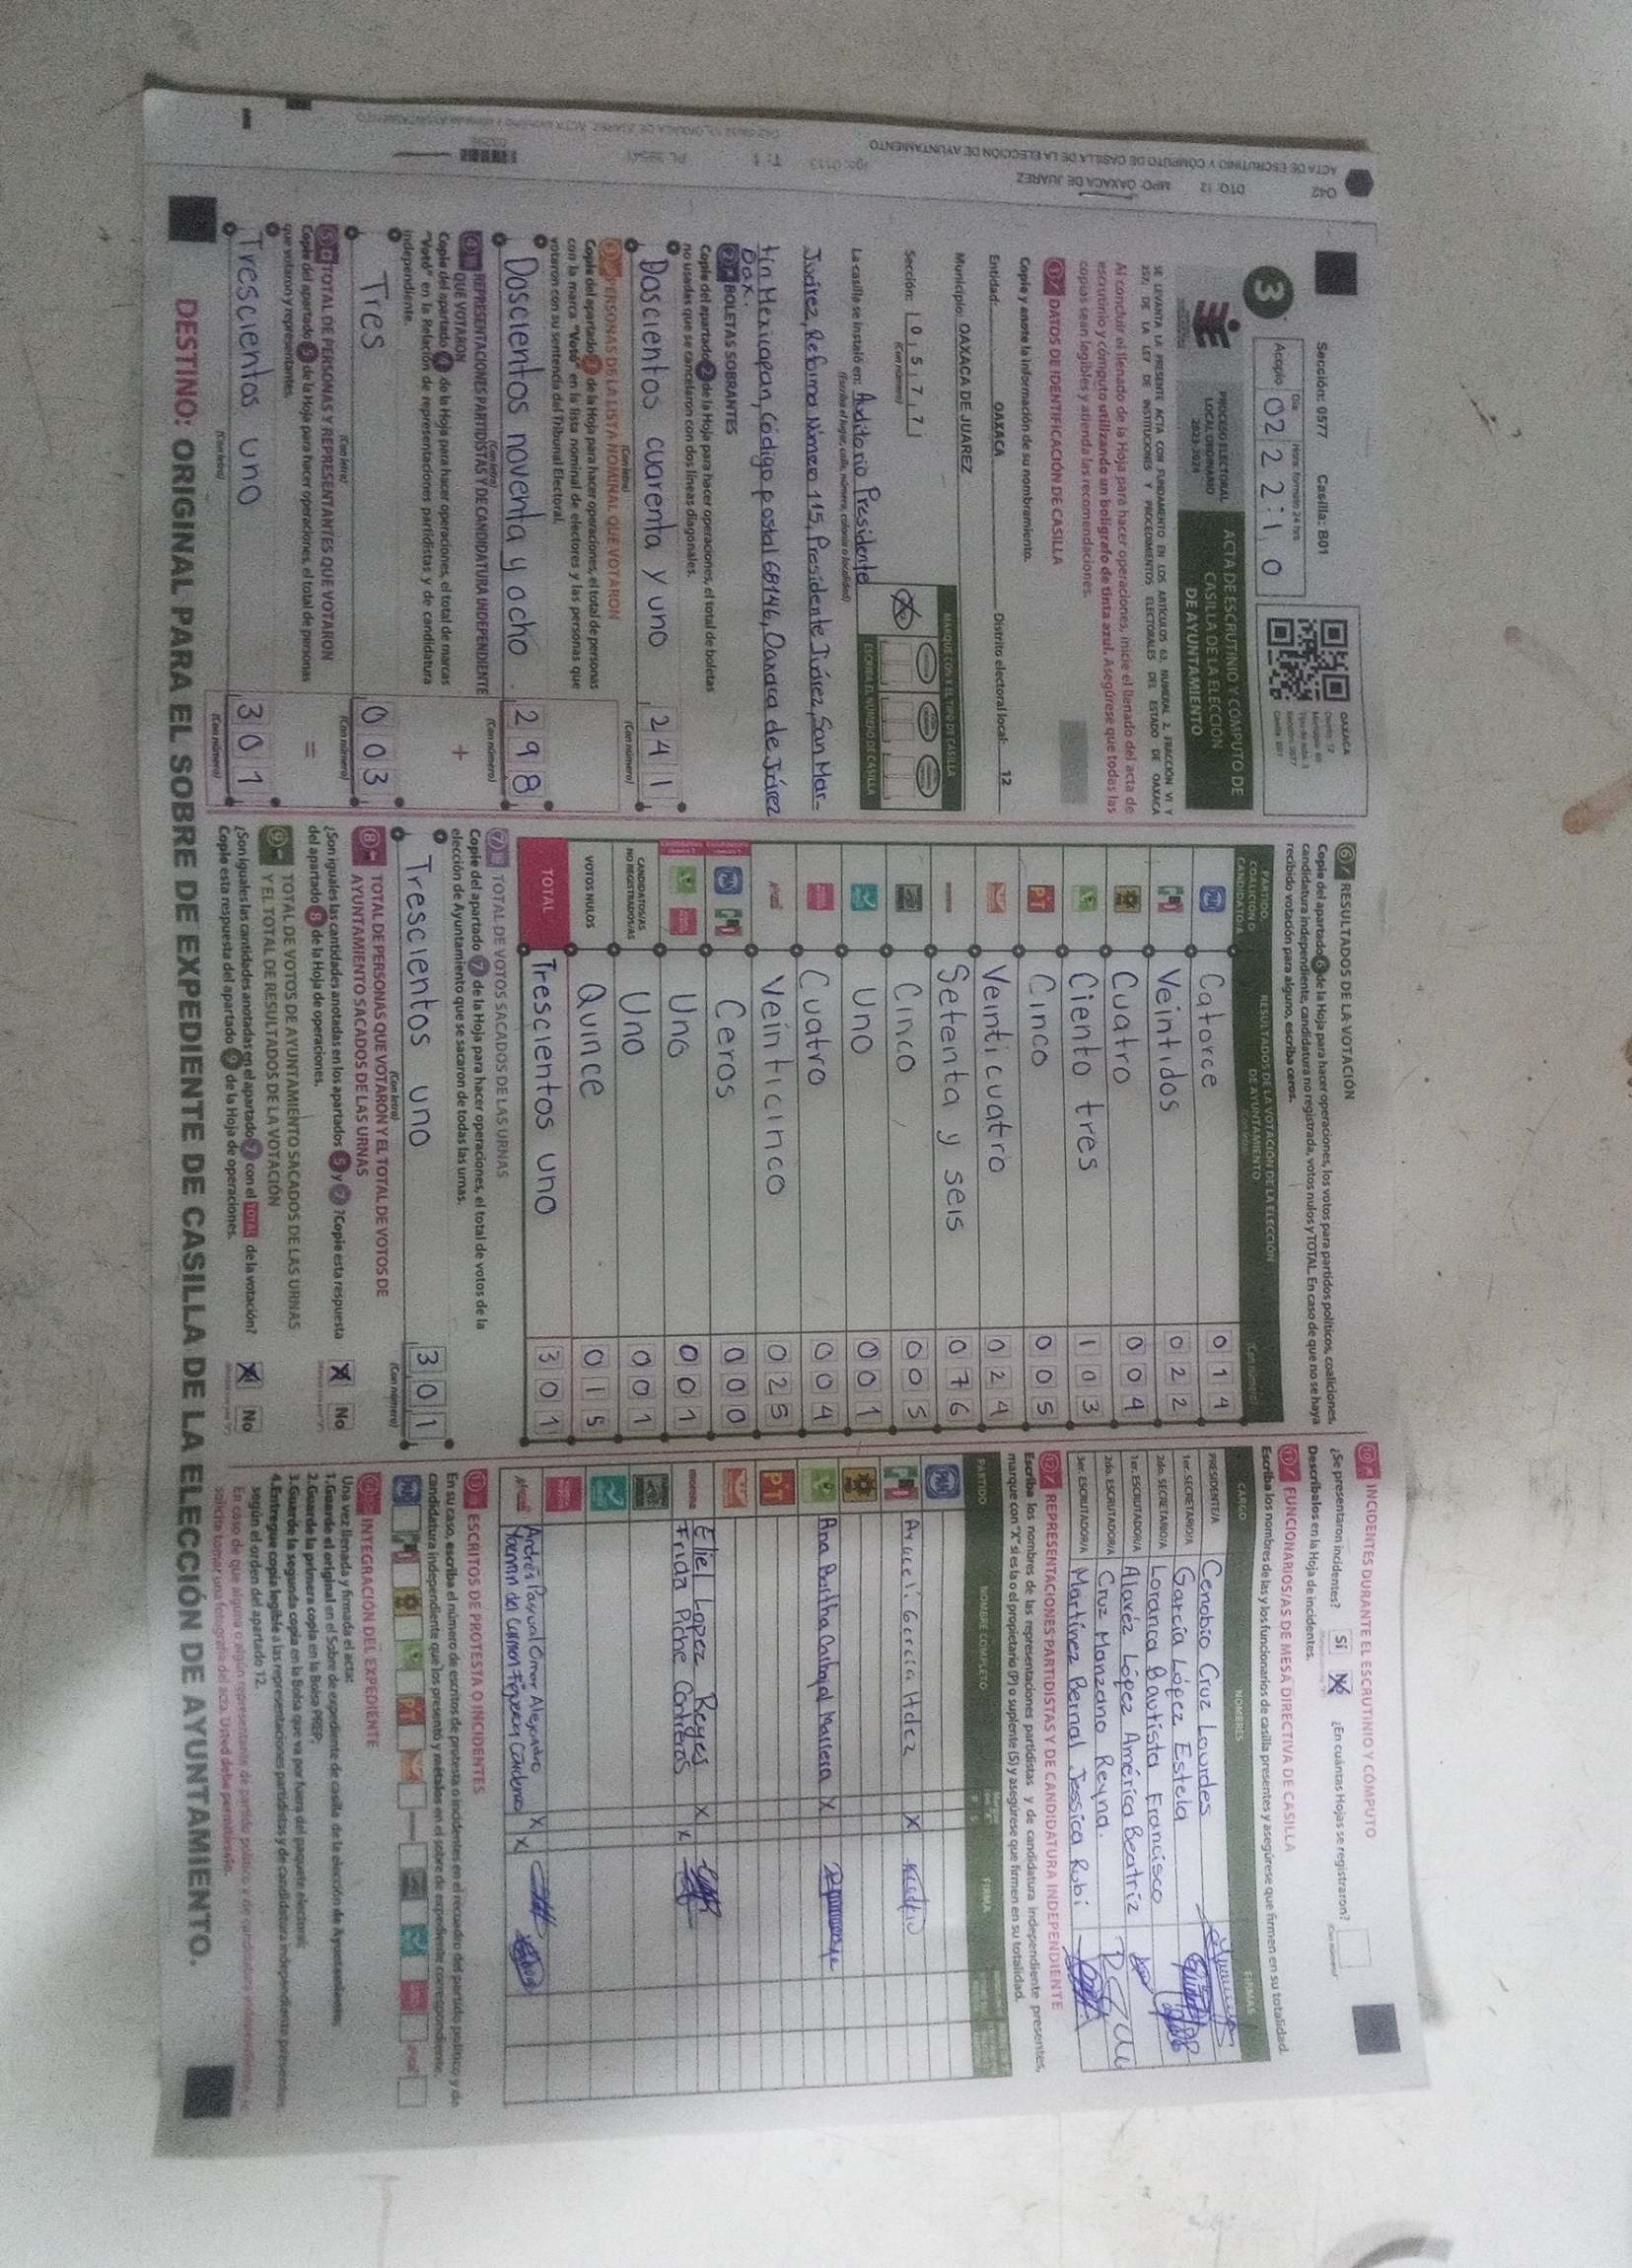 042 DTO. 12 MPO: OAXACA DE JUAREZ
ACTA DE ESCRUTINIO Y CÓMPUTO DE CASILLA DE LA ELECCIÓN DE AYUNTAMIENTO
Sección: 0577 Casilla: B01
3
Acopio
Día
Hora: formato 24 hrs
02 22:10
PROCESO ELECTORAL
LOCAL ORDINARIO
2023-2024
ACTA DE ESCRUTINIO Y CÓMPUTO DE
CASILLA DE LA ELECCIÓN
DE AYUNTAMIENTO
OAXACA
SE LEVANTA LA PRESENTE ACTA CON FUNDAMENTO EN LOS ARTÍCULOS 63, NUMERAL 2, FRACCIÓN VI Y
257, DE LA LEY DE INSTITUCIONES Y PROCEDIMIENTOS ELECTORALES DEL ESTADO DE OAXACA
Al concluir el llenado de la Hoja para hacer operaciones, inicie el llenado del acta de
escrutinio y cómputo utilizando un bolígrafo de tinta azul. Asegúrese que todas las
copias sean legibles y atienda las recomendaciones.
1 DATOS DE IDENTIFICACIÓN DE CASILLA
Copie y anote la información de su nombramiento.
Entidad: OAXACA Distrito electoral local: 12
Municipio: OAXACA DE JUAREZ
Sección: 0 5 7 7
(Con número)
MARQUE CON X EL TIPO DE CASILLA
ESCRIBA EL NÚMERO DE CASILLA
La casilla se instaló en: Auditorio Presidente
(Escriba el lugar, calle, número, colonia o localidad)
Juárez, Reforma Número 115, Presidente Juárez, San Mar-
tín Mexicapan, Código postal 68146, Oaxaca de Juárez
Oax.
2 BOLETAS SOBRANTES
Copie del apartado 2 de la Hoja para hacer operaciones, el total de boletas
no usadas que se cancelaron con dos líneas diagonales.
Doscientos cuarenta y uno 241
(Con letra) (Con número)
3 PERSONAS DE LA LISTA NOMINAL QUE VOTARON
Copie del apartado 3 de la Hoja para hacer operaciones, el total de personas
con la marca "Votó" en la lista nominal de electores y las personas que
votaron con su sentencia del Tribunal Electoral.
Doscientos noventa y ocho 298
(Con letra) (Con número)
4 REPRESENTACIONES PARTIDISTAS Y DE CANDIDATURA INDEPENDIENTE
QUE VOTARON +
Copie del apartado 4 de la Hoja para hacer operaciones, el total de marcas
"Votó" en la Relación de representaciones partidistas y de candidatura
independiente.
Tres 003
(Con letra) (Con número)
5 TOTAL DE PERSONAS Y REPRESENTANTES QUE VOTARON =
Copie del apartado 5 de la Hoja para hacer operaciones, el total de personas
que votaron y representantes.
Trescientos uno 301
(Con letra) (Con número)
6 RESULTADOS DE LA VOTACIÓN
Copie del apartado 6 de la Hoja para hacer operaciones, los votos para partidos políticos, coaliciones,
candidatura independiente, candidatura no registrada, votos nulos y TOTAL. En caso de que no se haya
recibido votación para alguno, escriba ceros.
PARTIDO, COALICIÓN O CANDIDATO/A
RESULTADOS DE LA VOTACIÓN DE LA ELECCIÓN
DE AYUNTAMIENTO
PAN Catorce 014
PRI Veintidos 022
Cuatro 004
Ciento tres 103
PT Cinco 005
Veinticuatro 024
morena Setenta y seis 076
Cinco 005
Uno 001
Cuatro 004
Veinticinco 025
PAN PRI Ceros 000
Uno 001
CANDIDATOS/AS
NO REGISTRADOS/AS Uno 001
VOTOS NULOS Quince 015
TOTAL Trescientos uno 301
7 TOTAL DE VOTOS SACADOS DE LAS URNAS
Copie del apartado 7 de la Hoja para hacer operaciones, el total de votos de la
elección de Ayuntamiento que se sacaron de todas las urnas.
Trescientos uno 301
(Con letra) (Con número)
8 TOTAL DE PERSONAS QUE VOTARON Y EL TOTAL DE VOTOS DE
AYUNTAMIENTO SACADOS DE LAS URNAS
¿Son iguales las cantidades anotadas en los apartados 5 y 7? Copie esta respuesta
del apartado 8 de la Hoja de operaciones. X No
9 TOTAL DE VOTOS DE AYUNTAMIENTO SACADOS DE LAS URNAS
Y EL TOTAL DE RESULTADOS DE LA VOTACIÓN
¿Son iguales las cantidades anotadas en el apartado 7 con el TOTAL de la votación?
Copie esta respuesta del apartado 9 de la Hoja de operaciones. X No
10 INCIDENTES DURANTE EL ESCRUTINIO Y CÓMPUTO
¿Se presentaron incidentes? Sí No ¿En cuántas Hojas se registraron?
Descríbalos en la Hoja de incidentes.
11 FUNCIONARIOS/AS DE MESA DIRECTIVA DE CASILLA
Escriba los nombres de las y los funcionarios de casilla presentes y asegúrese que firmen en su totalidad.
CARGO NOMBRES FIRMAS
PRESIDENTE/A Cenobio Cruz Lourdes
1er. SECRETARIO/A García López Estela
2do. SECRETARIO/A Loranca Bautista Francisco
1er. ESCRUTADOR/A Alavéz López América Beatriz
2do. ESCRUTADOR/A Cruz Manzano Reyna.
3er. ESCRUTADOR/A Martínez Bernal Jessica Rubí
12 REPRESENTACIONES PARTIDISTAS Y DE CANDIDATURA INDEPENDIENTE
Escriba los nombres de las representaciones partidistas y de candidatura independiente presentes,
marque con "X" si es la o el propietario (P) o suplente (S) y asegúrese que firmen en su totalidad.
PARTIDO NOMBRE COMPLETO FIRMA
PAN
PRI Araceli García Hdez X
Ana Bertha Carbajal X
PT
morena Eliel Lopez Reyes X
Frida Piche Contreras X
Andrés Pascual Omar Alejandro X
del Carmen Figueroa Cárdenas X
13 ESCRITOS DE PROTESTA O INCIDENTES
En su caso, escriba el número de escritos de protesta o incidentes en el recuadro del partido político y de
candidatura independiente que los presentó y métalos en el sobre de expediente correspondiente.
14 INTEGRACIÓN DEL EXPEDIENTE
Una vez llenada y firmada el acta:
1. Guarde el original en el Sobre de expediente de casilla de la elección de Ayuntamiento;
2. Guarde la primera copia en la Bolsa PREP;
3. Guarde la segunda copia en la Bolsa que va por fuera del paquete electoral;
4. Entregue copia legible a las representaciones partidistas y de candidatura independiente presentes,
según el orden del apartado 12.
DESTINO: ORIGINAL PARA EL SOBRE DE EXPEDIENTE DE CASILLA DE LA ELECCIÓN DE AYUNTAMIENTO.